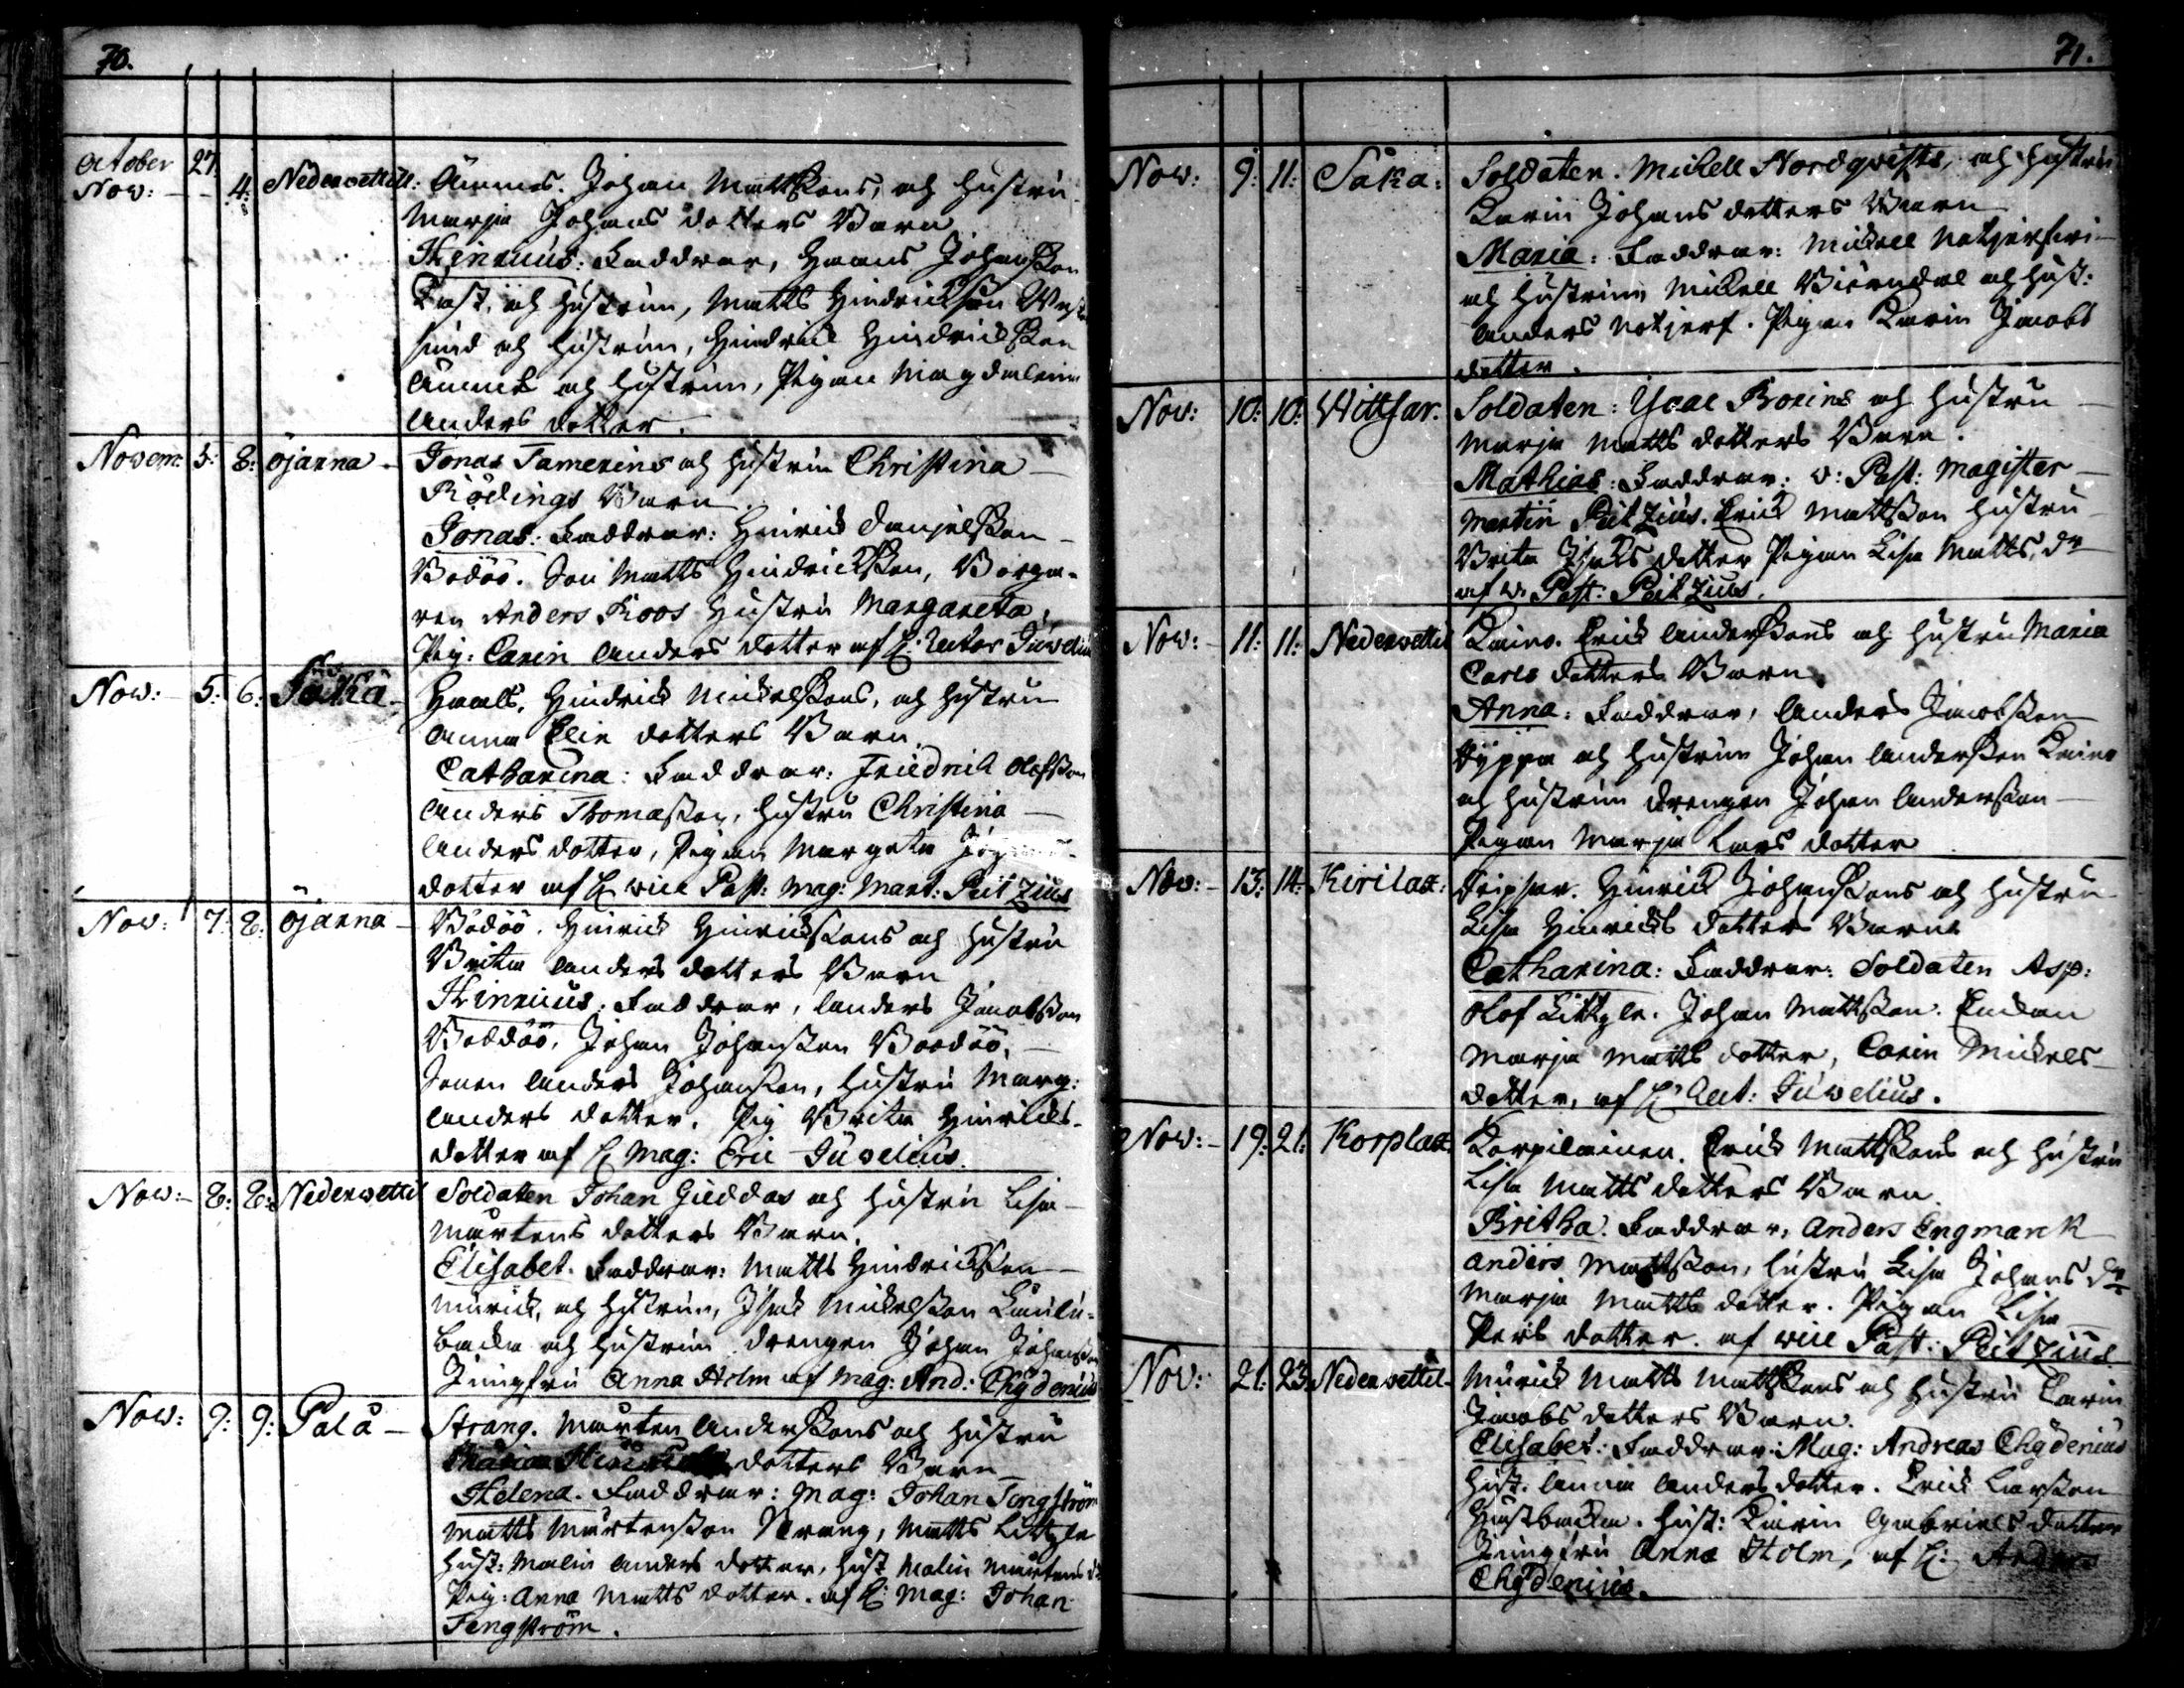 70.
October 27.
Nov: - - 4: Nederwettill: Ånnes. Johan Mattssons, och hustru
Marja Johans dotters Barn
Hinricus: Faddrar, Hans Johansson
Kast, och hustrun, Matts Hindricksson
sund och hustrun, Hindrick Hindricksson
och hustrun, Pigan Magdalena
Anders dotter.
Novem: 5: 8: öjarna - Jonas Tamerins och hustru Christina
Rödings Barn.
Jonas: Faddrar: Hinrick Danjelsson
Bodöö. Son Matts Hindricksson, Borga-
ren Anders Roos hustru Margareta,
Pig: Carin Anders dotter af H: Rector Juvelius
Nov: - 5: 6: Såkå - Haals, Hindrick Mickelssons, och hustru
Anna Elin dotters Barn.
Catharina: Faddrar: Friedrich Olofsson
Anders Thomasson, hustru Christina
Anders dotter, Pigan Margeta
dotter af H Vice Past: Mag: Mart: Peitzius
Nov: 7: 8: öjarna - Bodöö. Hinrick Hinrickssons och hustru
Brita Anders dotters Barn
Hinricus. Faddrar, Anders Jacobsson
Boddöö, Johan Johansson Boodöö,
Sonen Anders Johansson, hustru Marg:
Anders dotter. Pig Brita Hinricks-
dotter af H Mag: Eric Juvelius.
Nov: - 8: 8: Nederwettil Soldaten Johan Guddas och hustru Lisa
Mårtens dotters Barn.
Elisabet. Faddrar: Matts Hindricksson
Murick, och hustrun, Isack Mickelsson
backa och hustrun drengen Johan Johansson
Jungfru Anna Holm af Mag: And: Chydenius
Nov: 9: 9: Palå - Strang. Mårten Anderssons och hustru
dotters Barn
Helena. Faddrar: Mag: Johan Tengström
Matts Mårtensson Strang, Matts
Hust: Malin Anders dotter, Hust Malin Mårtens dr
Pig: Anna Matts dotter. af H: Mag: Johan
Tengström.
71.
Nov: 9: 11: Såka: Soldaten. Mickell Nordqvists, och hustru
Karin Johans dotters Barn
Maria: Faddrar: Mickell
och hustrun Mickell och hust:
Anders. Pigan Karin Jacobs
dotter.
Nov: 10: 10: Wittsar. Soldaten: Isac Borins och hustru
Marja Matts dotters Barn.
Mathias: Faddrar: v: Past: Magister
Martin Peitzius. Erick Mattsson hustru
Brita Isaks dotter Pigan Lisa Matts, dr
af v. Past: Peitzius.
Nov: - 11: 11: Nederwettil Kaino. Erick Anderssons och hustru Maria
Carls dotters Barn.
Anna: Faddrar, Anders Jacobsson
Hyppa och hustrun Johan Andersson Kaino
och hustrun drengen Johan Andersson
Pigan Marja Lars dotter
Nov: - 13: 14: Kirilax: Hinrick Johanssons och hustru
Lisa Hinricks dotters Barn
Catharina: Faddrar: Soldaten Asp:
Olof. Johan Mattsson. Enkan
Marja Matts dotter, Carin Mickels
dotter, af H: Rect: Juwelius.
Nov: - 19: 21: Korplax. Korpilainen. Erick Mattssons och hustru
Lisa Matts dotters Barn.
Britha. Faddrar, Anders Engmark
Anders Mattsson, hustru Lisa Johans dr
Marja Matts dotter. Pigan Lisa
Pers dotter. af vice Past: Peitzius
Nov: 21: 23: Nederwettil - Murick Matts Mattssons och hustru Carin
Jacobs dotters Barn.
Elisabet: Faddrar: Mag: Andreas Chydenius
Hust. Anna Anders dotter. Erick Larsson
backa. Hust: Karin Gabriels dotter
Jungfru Anna Holm, af H: Anders
Chydenius.